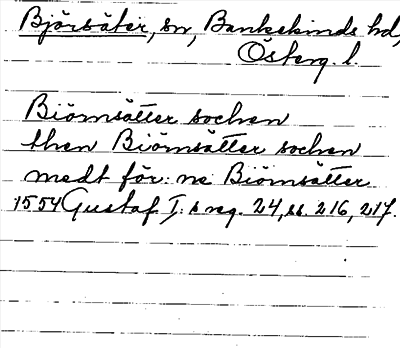 Björsäter, sn, Bankekinds hd,
Österg. l.
Biömsätter sochen
then Biömsätter sochen
medt för: ne Biömsätter
1554 Gustaf I:s reg. 24, ss. 216, 217.